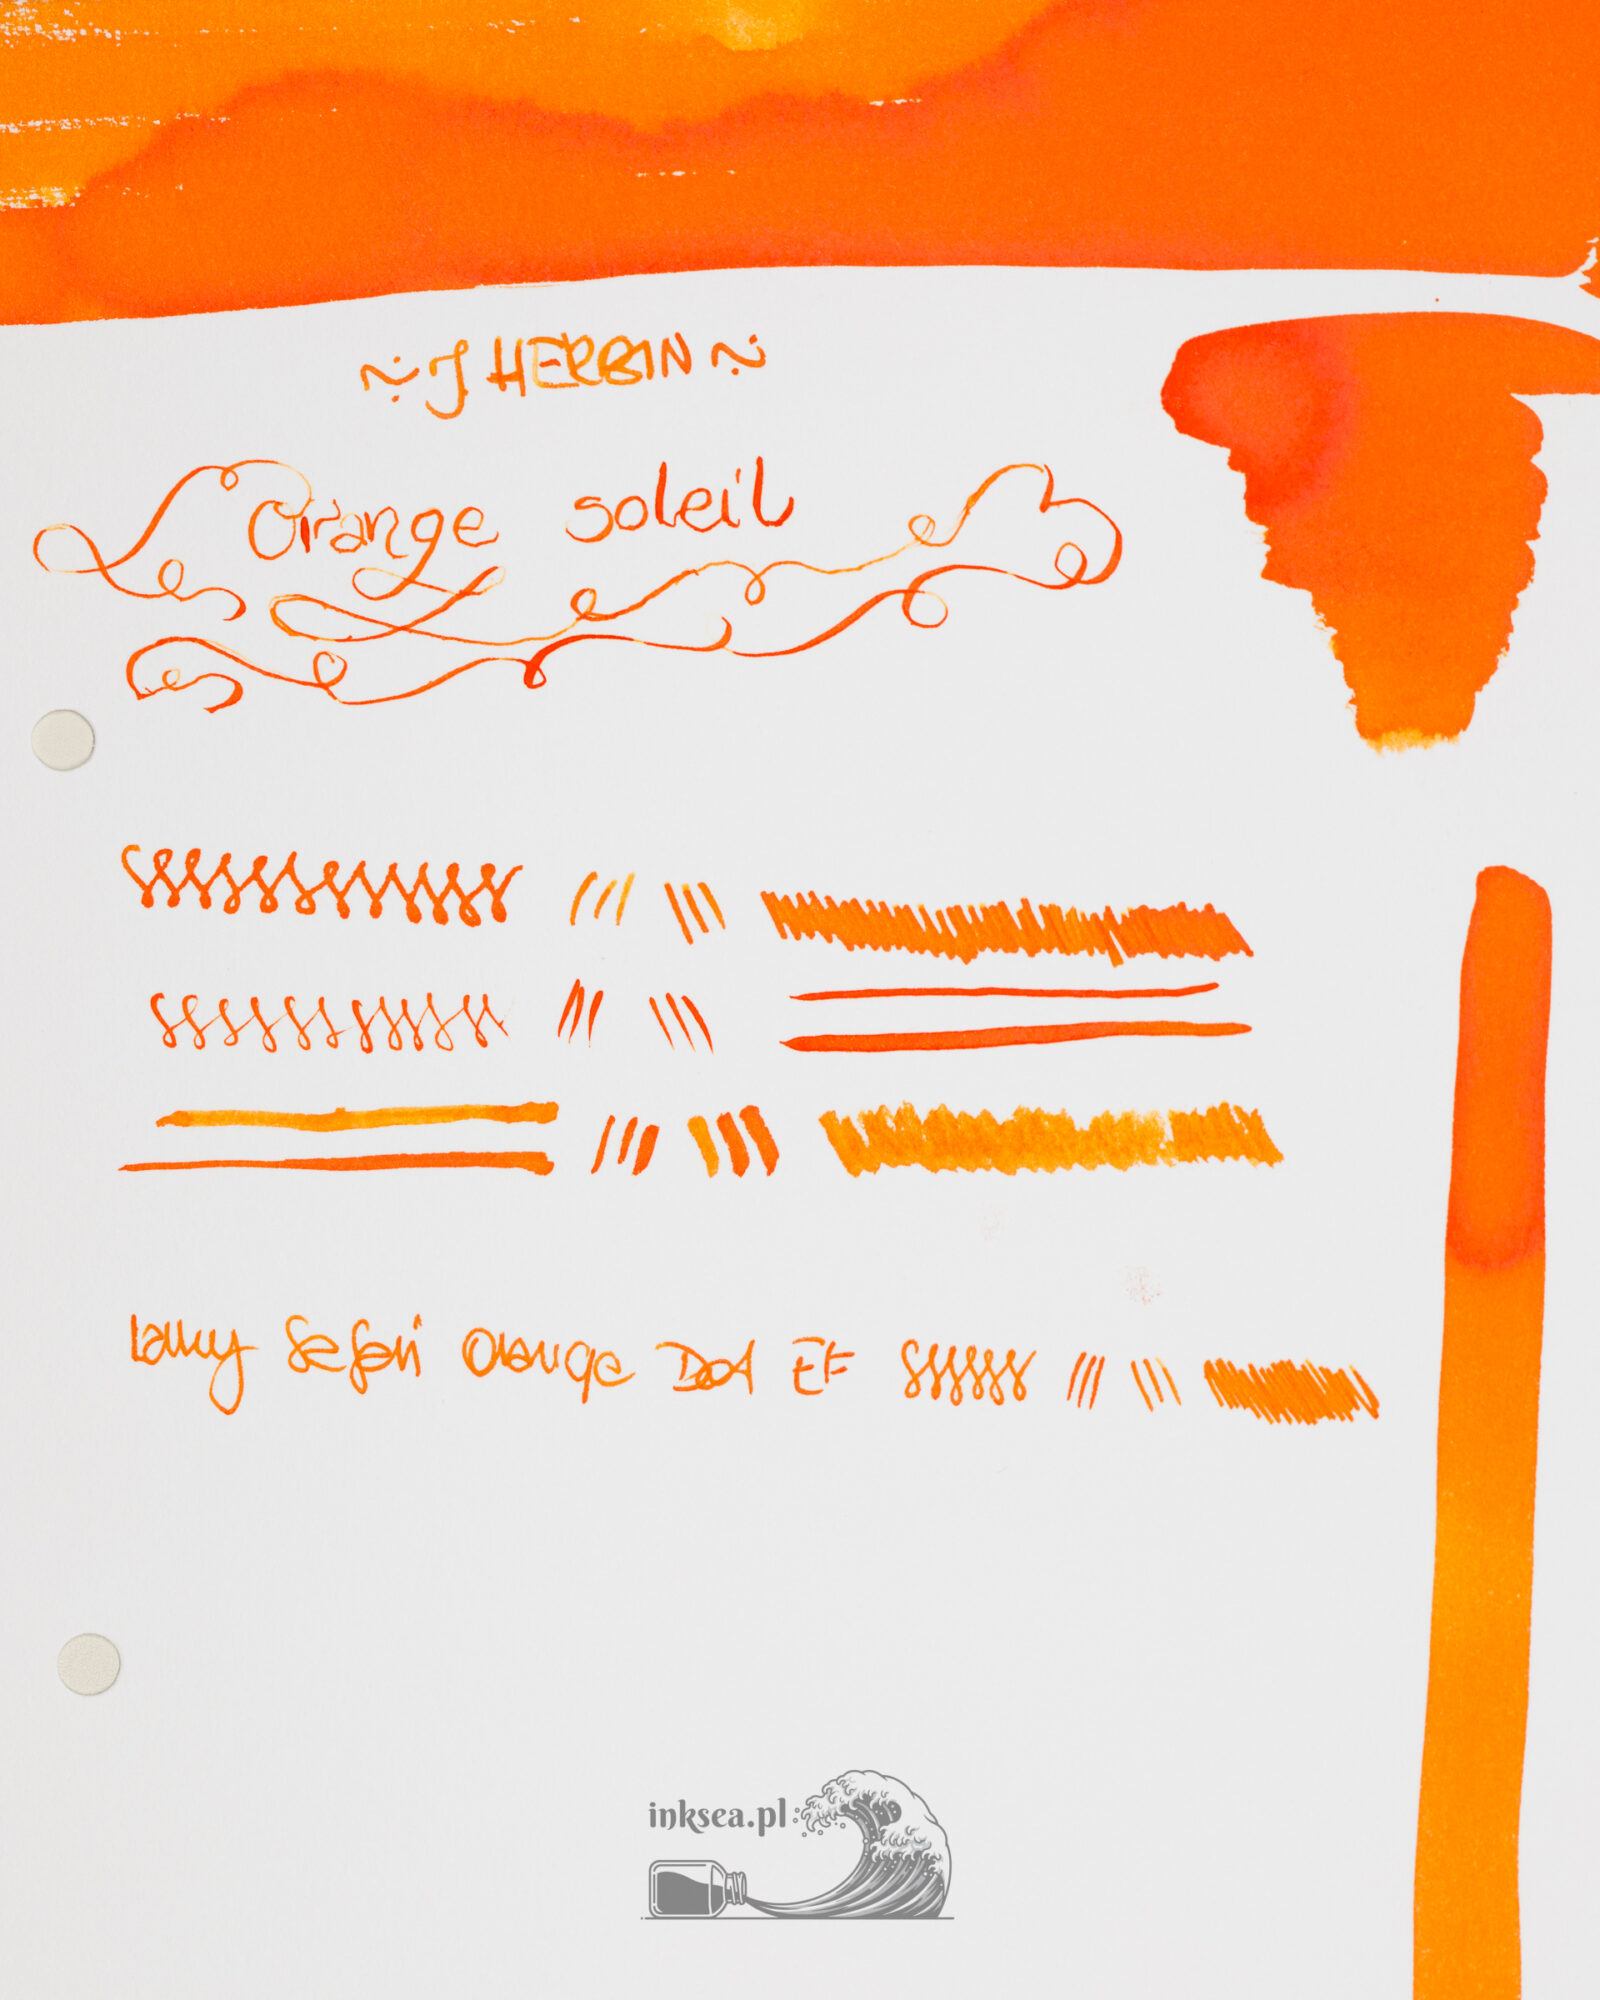 ~ J HERBIN ~
Orange soleil
Lamy Safari Orange Dot EF
inksea.pl